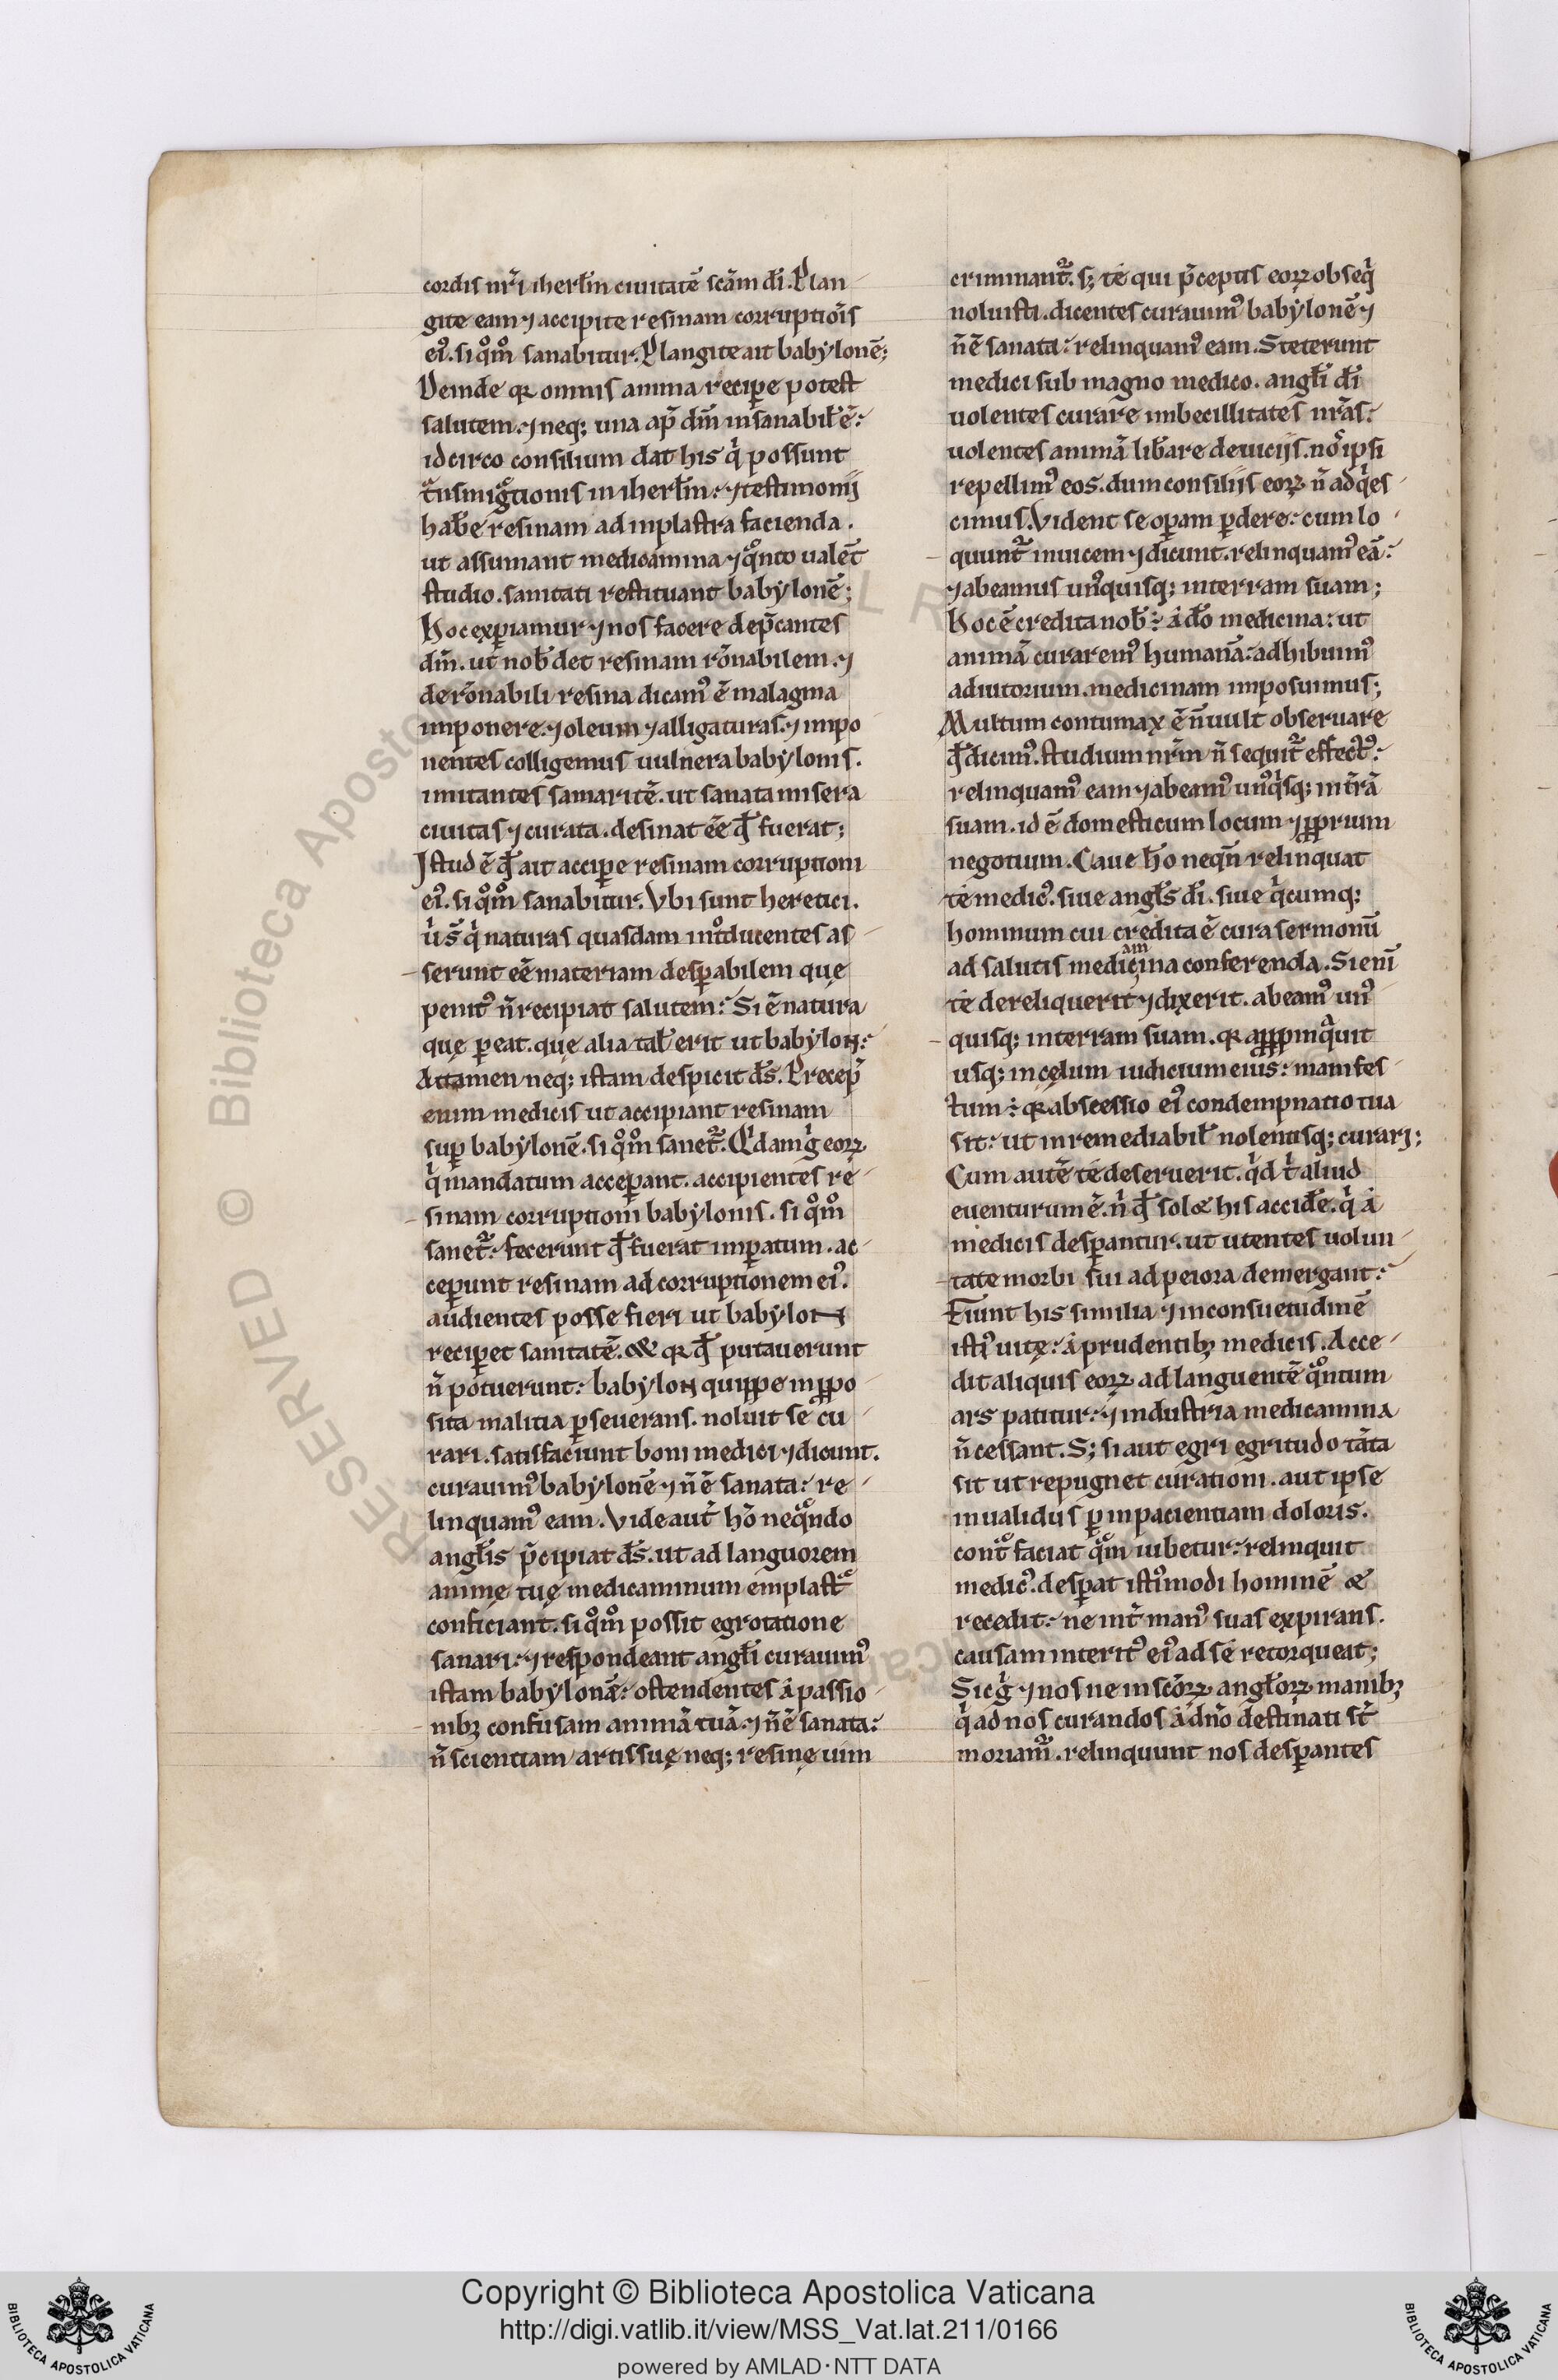 cordis nr̄i iherłm ciuitatē scām dī. Plan
gite eam ⁊ accipite resinam corruptiōis
ei᾿. si qͦm̊ sanabitur. Plangite ait babylonē;
Deinde qꝛ omnis anima recipe potest
salutem. ⁊ neq; una ap̄ dm̄ insanabił ē:
idcirco consilium dat his qⁱ possunt
tͣnsmigͣtionis in iherłm: ⁊ testimonij
habe resinam ad inplastra facienda.
ut assumant medicamina ⁊ qͣnto ualēt
studio. sanitati restituant babylonē;
Hoc exꝑiamur ⁊ nos facere dep̄cantes
dm̄. ut nob̄ det resinam rōnabilem. ⁊
de rōnabili resina dicam᾿ ē malagma
imponere. ⁊ oleum ⁊ alligaturas. ⁊ impo
nentes colligemus uulnera babylonis.
imitantes samaritē. ut sanata misera
ciuitas ⁊ curata. desinat eē qđ fuerat;
Istud ē qđ ait accipe resinam corruptioni
ei᾿. si qͦm̊ sanabitur. Vbi sunt heretici.
u̇ s̄ qⁱ naturas quasdam intͦducentes as
serunt eē materiam despabilem quę
penit᾿ n̄ recipiat salutem: Si ē natura
quę ꝑeat. quę alia tał erit ut babylon:
Attamen neq; istam despicit ds̄. Precep̄
enim medicis ut accipiant resinam
suꝑ babylonē. si qͦm̊ sanet᷑. Qⁱdam gⁱ eoꝝ
qⁱ mandatum acceꝑant. accipientes re
sinam corruptioni babylonis. si qͦm̊
sanet᷑: fecerunt qđ fuerat imꝑatum. ac
ceꝑunt resinam ad corruptionem ei᾿.
audientes posse fieri ut babylon
reciꝑet sanitatē. & qꝛ qđ putauerunt
n̄ potuerunt: babylon quippe in ꝓpo
sita malitia ꝑseuerans. noluit se cu
rari. satisfaciunt boni medici ⁊ dicunt.
curauim᾿ babylonē ⁊ n̄ ē sanata: re
linquam᾿ eam. Vide aut̄ hō neqͣndo
angłis p̄cipiat ds̄. ut ad languorem
animę tuę medicaminum emplastͣ
conficiant. si qͦm̊ possit egrotatione
sanari: ⁊ respondeant angłi curauim᾿
istam babylonā: ostendentes á passio
nibꝫ confusam animā tuā. ⁊ n̄ ē sanata:
n̄ scientiam artis suę neq; resinę uim
criminant᷑. s; té qui p̄ceptis eoꝝ obseqⁱ
noluisti. dicentes curauim᾿ babylonē ⁊
n̄ ē sanata: relinquam᾿ eam. Steterunt
medici sub magno medico. angłi dī
uolentes curare imbecillitates nr̄as:
uolentes animā libare de uicijs. nos̊ ipsi
repellim᾿ eos. dum consiliis eoꝝ n̄ adqⁱes
cimus. Vident se oꝑam ꝑdere: cum lo
quunt᷑ inuicem ⁊ dicunt. relinquam᾿ eā:
⁊ abeamus un᾿quisq; in terram suam;
Hoc ē credita nob̄: á do medicina: ut
animā curarem᾿ humanā: adhibuim᾿
adiutorium. medicinam imposuimus;
Multum contumax ē n̄ uult obseruare
qđ dicim᾿. studium nr̄m n̄ sequit᷑ effect᾿:
relinquam᾿ eam ⁊ abeam᾿ un᾿qⁱsq; in tr̄ā
suam. id ē domesticum locum ⁊ ꝓprium
negotium. Caue hō neqn̄ relinquat
té medic᾿. siue angłs dī. siue qⁱcumq;
hominum cui credita ē cura sermonū
am
ad salutis medicina conferenda. Si enī
té dereliquerit ⁊ dixerit. abeam᾿ un᾿
quisq; in terram suam. qꝛ apꝓpinqͣuit
usq; in cęlum iudicium eius: manifes
tum: qꝛ abscessio ei᾿ condempnatio tua
sit: ut inremediabił nolentisq; curari;
Cum autē té deseruerit. qⁱd tⁱ aliud
euenturum ē. nⁱ qđ solet his acciđe. qⁱ á
medicis despantur. ut utentes uolun
tate morbi sui ad peiora demergant:
Fiunt his similia ⁊ in consuetudinē
isti᾿ uitę: á prudentibꝫ medicis. Acce
dit aliquis eoꝝ ad languentē qͣntum
ars patitur: ⁊ industria medicamina
n̄ cessant. S; si aut egri egritudo tāta
sit ut repugnet curationi. aut ipse
inualidus ꝑ inpacientiam doloris.
contͣ faciat qͣm iubetur: relinquit
medic᾿. despat isti᾿modi hominē &
recedit: ne int̄ man᾿ suas expirans.
causam interit᾿ ei᾿ ad sé retorqueat;
Sic gⁱ ⁊ nos ne in scōꝝ angłoꝝ manibꝫ
qⁱ ad nos curandos á dn̄o destinati st̄
moriam᷑. relinquunt nos despantes
Copyright © Biblioteca Apostolica Vaticana
http://digi.vatlib.it/view/MSS_Vat.lat.211/0166
powered by AMLAD·NTT DATA
BIBLIOTECA APOSTOLICA VATICANA
BIBLIOTECA APOSTOLICA VATICANA